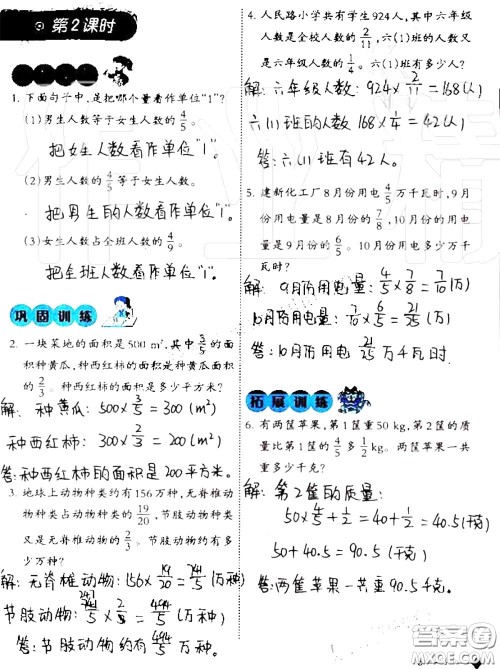 第2课时
1. 下面句子中,是把哪个量看作单位"1"?
(1)男生人数等于女生人数的4/5。
把女生人数看作单位"1"。
(2)男生人数的4/5等于女生人数。
把男生的人数看作单位"1"。
(3)女生人数占全班人数的4/9。
把全班人数看作单位"1"。
巩固训练
2. 一块菜地的面积是500 m²,其中3/5的面
积种黄瓜,种西红柿的面积是黄瓜面积
的2/3。种西红柿的面积是多少平方米?
解:种黄瓜:500×3/5=300(m²)
种西红柿:300×2/3=200(m²)
答:种西红柿的面积是200平方米。
3. 地球上动物种类约有156万种,无脊椎
动物占动物种类的19/20,节肢动物种类
又是无脊椎动物的5/6。节肢动物约有多
少万种?
解:无脊椎动物:156×19/20=741/5(万种)
节肢动物:741/5×2/3=494/5(万种)
答:节肢动物约有494/5万种。
4. 人民路小学共有学生924人,其中六年级
人数是全校人数的2/11,六(1)班的人数又
是六年级人数的1/4。六(1)班有多少人?
解:六年级人数:924×2/11=168(人)
六(1)班的人数168×1/4=42(人)
答:六(1)班有42人。
5. 建新化工厂8月份用电4/5万千瓦时,9月
份用电量是8月份的7/8,10月份的用电
量是9月份的6/5。10月份用电多少万千
瓦时?
解:9月份用电量:4/5×7/8=7/10(万)
10月份用电量:7/10×6/5=21/25(万)
答:10月份用电21/25万千瓦时.
拓展训练
6. 有两筐苹果,第1筐苹果重50 kg,第2筐的质
量比第1筐的4/5多1/2 kg。两筐苹果一共
重多少千克?
解:第2筐的质量:
50×4/5+1/2=40+1/2=40.5(千克)
50+40.5=90.5(千克)
答:两筐苹果一共重90.5千克。